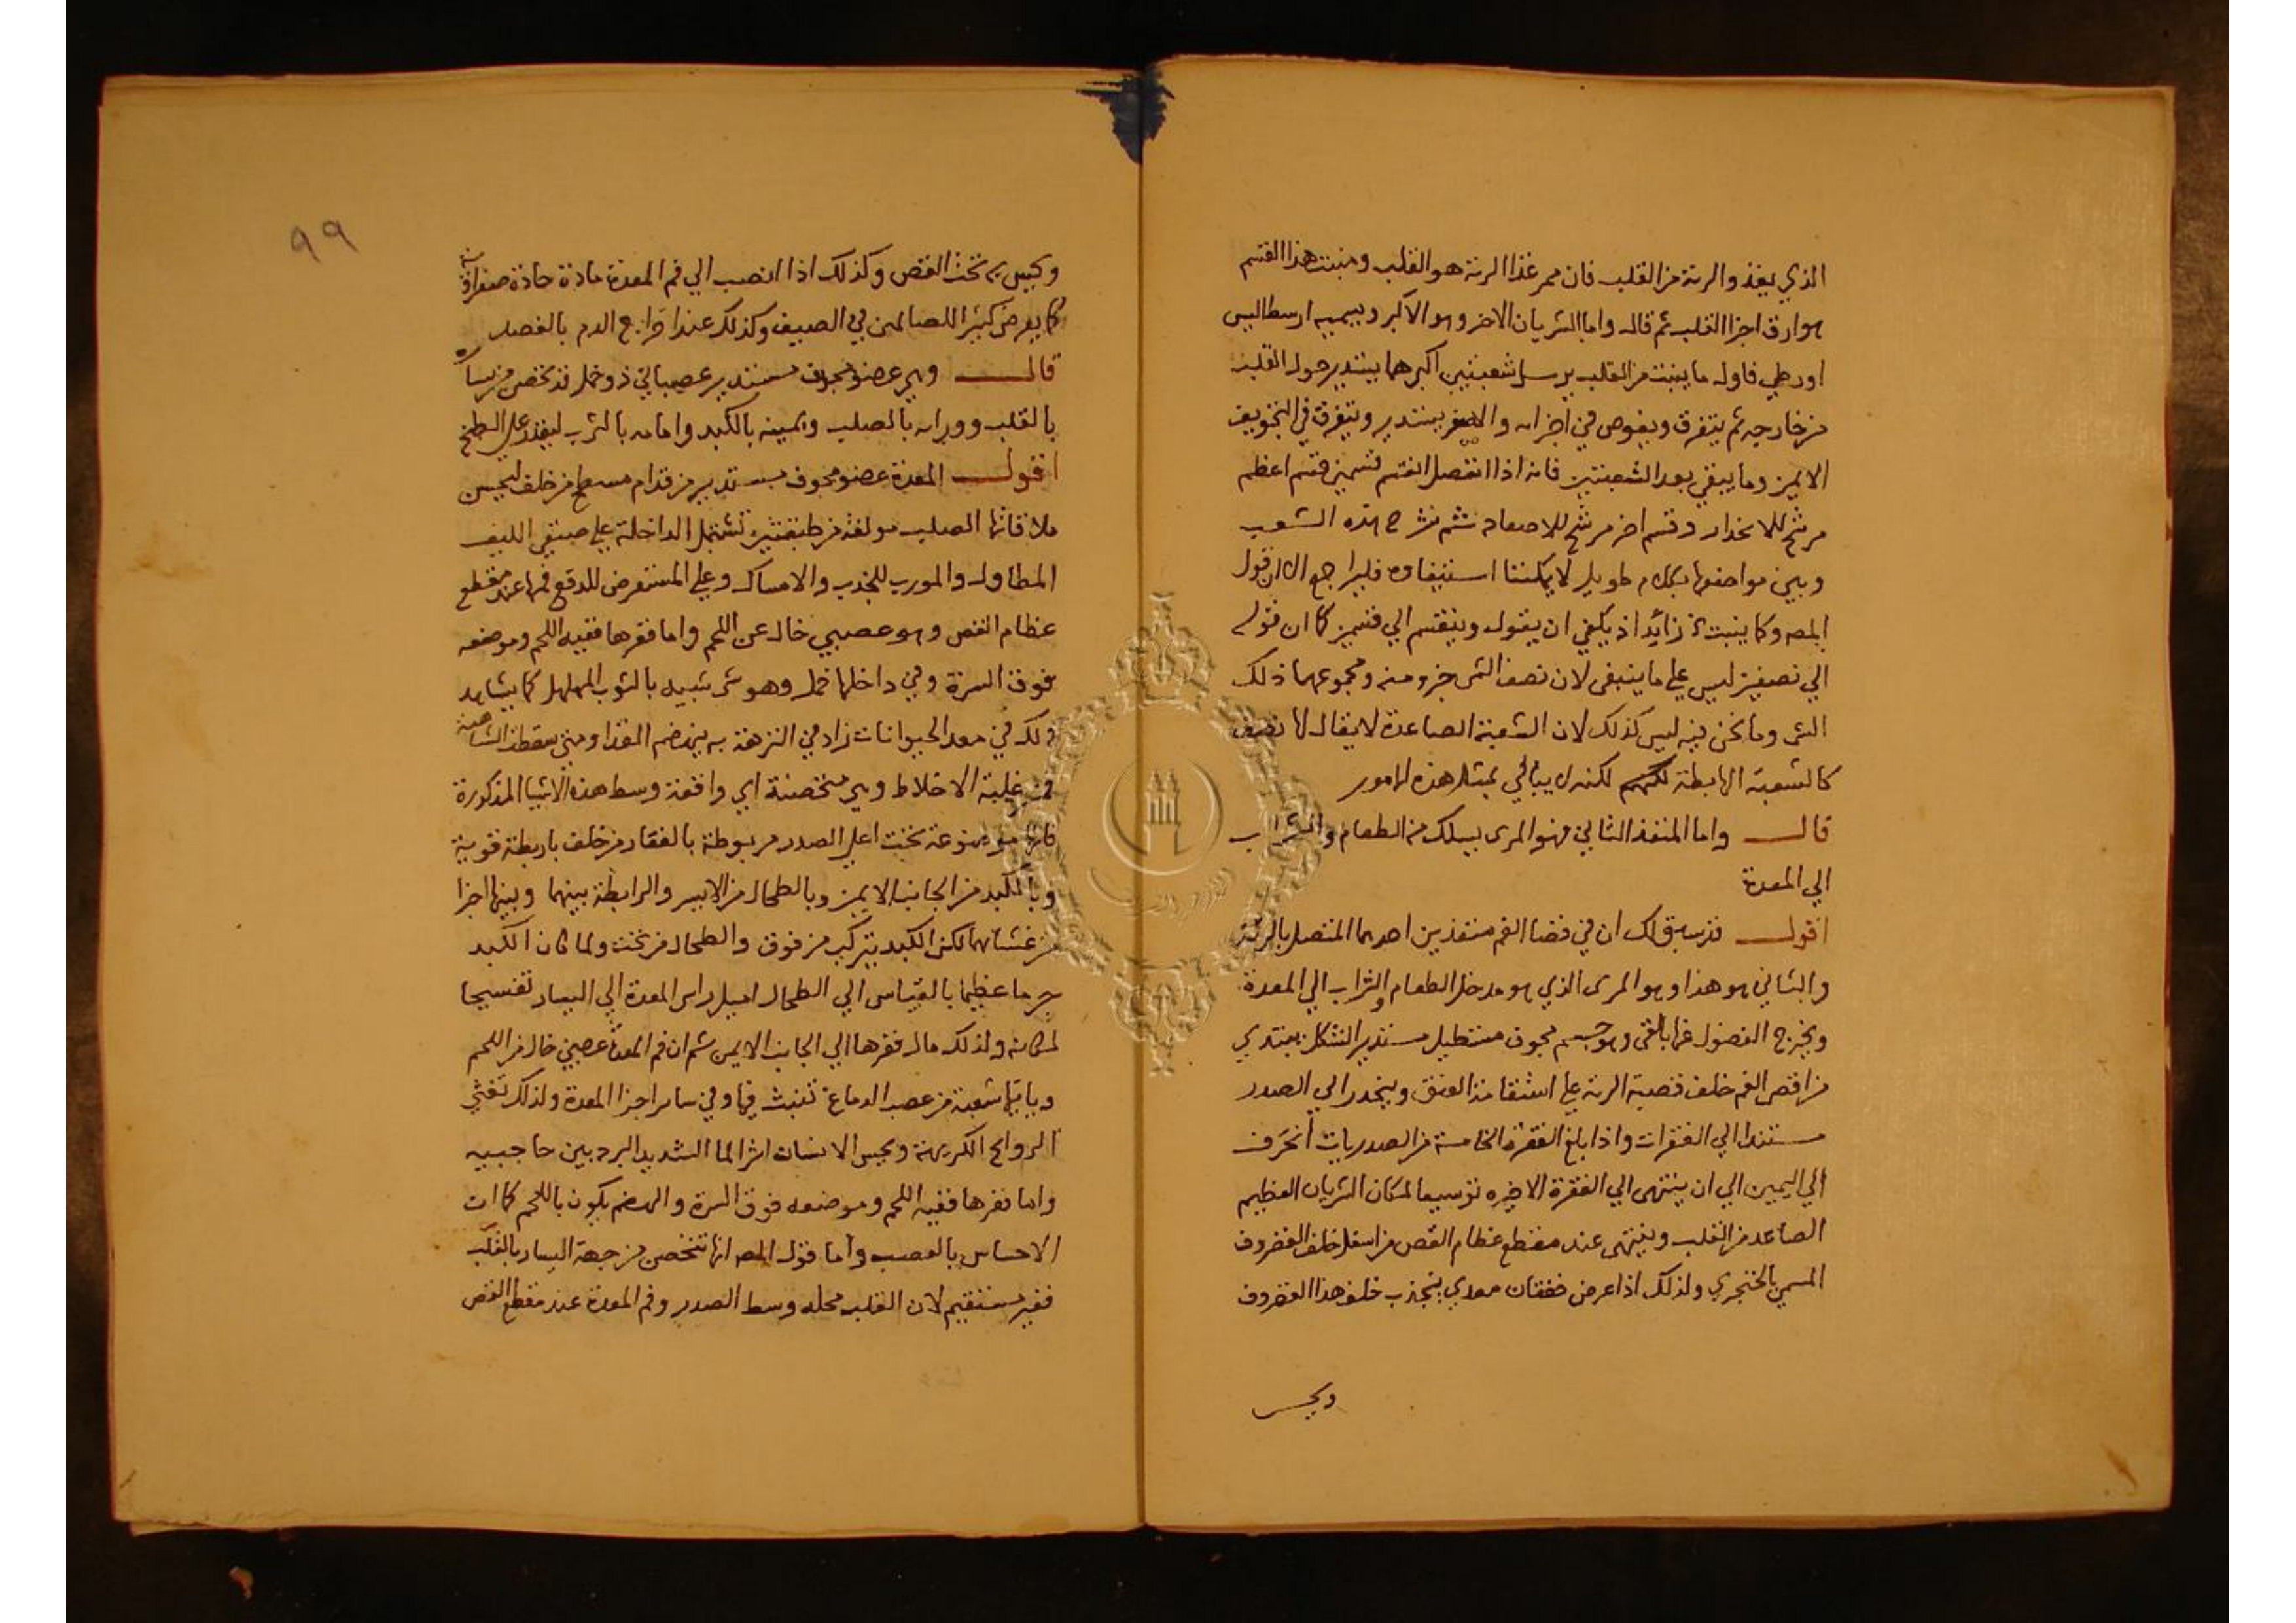 الذي يغذو الرئة من القلب فان ممر غذا الرئة هو القلب ومنبت هذا القسم
هو ارق اجزا القلب ثم قال واما الشريان الاخر وهو الاكبر ويسميه ارسطاليس
اورطي فاول ما ينبت من القلب يرسل شعبتين اكبرهما يستدير حول القلب
من خارجه ثم يتفرق ويغوص في اجزائه والاصغر يستدير ويتفرق في التجويف
الايمن وما يبقي بعد الشعبتين فانه اذا انفصل انقسم قسمين قسم اعظم
مرشح للانحدار وقسم اخر مرشح للاصعاد ثم شرح هذه الشعب
وبين مواضعها بكلام طويل لا يمكننا استيفاوه فليراجع الا ان قول
المصه وكما ينبت زايد اذ يكفي ان يقول وينقسم الي قسمين كما ان قوله
الي نصفين ليس علي ما ينبغي لان نصف الشي جزو منه ومجموعهما ذلك
الشي وما نحن فيه ليس كذلك لان الشعبة الصاعدة لا يقال لها نصف
كالشعبة الهابطة لكنه لا يبالي بمثل هذه الامور
قال واما المنفذ الثاني فهو المرى يسلك منه الطعام والشراب
الي المعدة
اقول قد سبق لك ان في فضا الفم منفذين احدهما المتصل بالرئة
والثاني هو هذا وهو المرى الذي هو مدخل الطعام والشراب الي المعدة
ويخرج الفضول عنها بالقى وهو جسم مجوف مستطيل مستدير الشكل يبتدي
من اقصى الفم خلف قصبة الرئة علي استقامة العنق وينحدر الي الصدر
مستندا الي الفقرات واذا بلغ الفقرة الخامسة من الصدريات انحرف
الي اليمين الي ان ينتهى الي الفقرة الاخيره توسيعا لمكان الشريان العظيم
الصاعد من القلب وينتهى عند مقطع عظام القص من اسفل خلف الغضروف
المسمي بالخنجري ولذلك اذا عرض خفقان معدي ينجذب خلف هذا الغضروف
ويحس
٩٩
ويحس به تحت القص وكذلك اذا انصب الي فم المعدة مادة حادة صفراوية
كما يعرض كثيرا للصائمين في الصيف وكذلك عند اخراج الدم بالفصد
قال وهي عضو مجوف مستدير عصباني ذو خمل قد تخصن من يساره
بالقلب وورائه بالصلب ويمينه بالكبد وامامه بالثرب ليقتدر علي الطبخ
اقول المعدة عضو مجوف مستدير من قدام مسطح من خلف ليحسن
ملاقاتها الصلب مولفة من طبقتين تشتمل الداخلة علي صنفي الليف
المطاول والمورب للجذب والامساك وعلي المستعرض للدفع فمها عند مقطع
عظام القص وهو عصبي خال عن اللحم واما قعرها ففيه اللحم وموضعه
فوق السرة وفي داخلها خمل وهو شي شبيه بالثوب المهلهل كما يشاهد
ذلك في معد الحيوانات زاد في النزهة به ينهضم الغذا ومتى سقطت الشاهية
فمن غلبة الاخلاط وهي متخصنة اي واقعة وسط هذه الاشيا المذكورة
فانها موضوعة تحت اعلي الصدر مربوطة بالفقار من خلف باربطة قوية
وبالكبد من الجانب الايمن وبالطحال من الايسر والرابطة بينهما وبينها اجزا
من غشائهما لكن الكبد يتركب من فوق والطحال من تحت ولما كان الكبد
جرما عظيما بالقياس الي الطحال اميل راس المعدة الي اليسار تفسيحا
لمكانه ولذلك مال قعرها الي الجانب الايمن ثم ان فم المعدة عصبي خال من اللحم
وياتيها شعبة من عصب الدماغ تنبث فيها وفي ساير اجزا المعدة ولذلك تغثي
الروايح الكريهة ويحس الانسان اثر الما الشديد البرد بين حاجبيه
واما قعرها ففيه اللحم وموضعه فوق السرة والهضم يكون باللحم كما ان
الاحساس بالعصب واما قول المصه انها تتخصن من جهة اليسار بالقلب
فغير مستقيم لان القلب محله وسط الصدر وفم المعدة عند مقطع القص